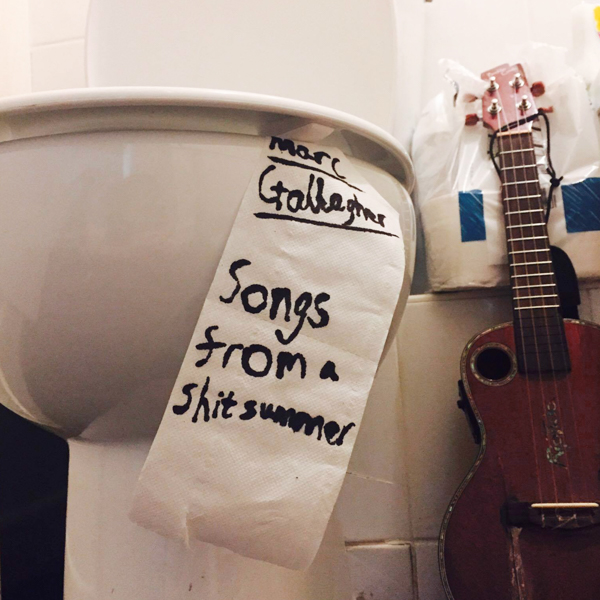 Marc
Gallagher
Songs
from a
shit summer